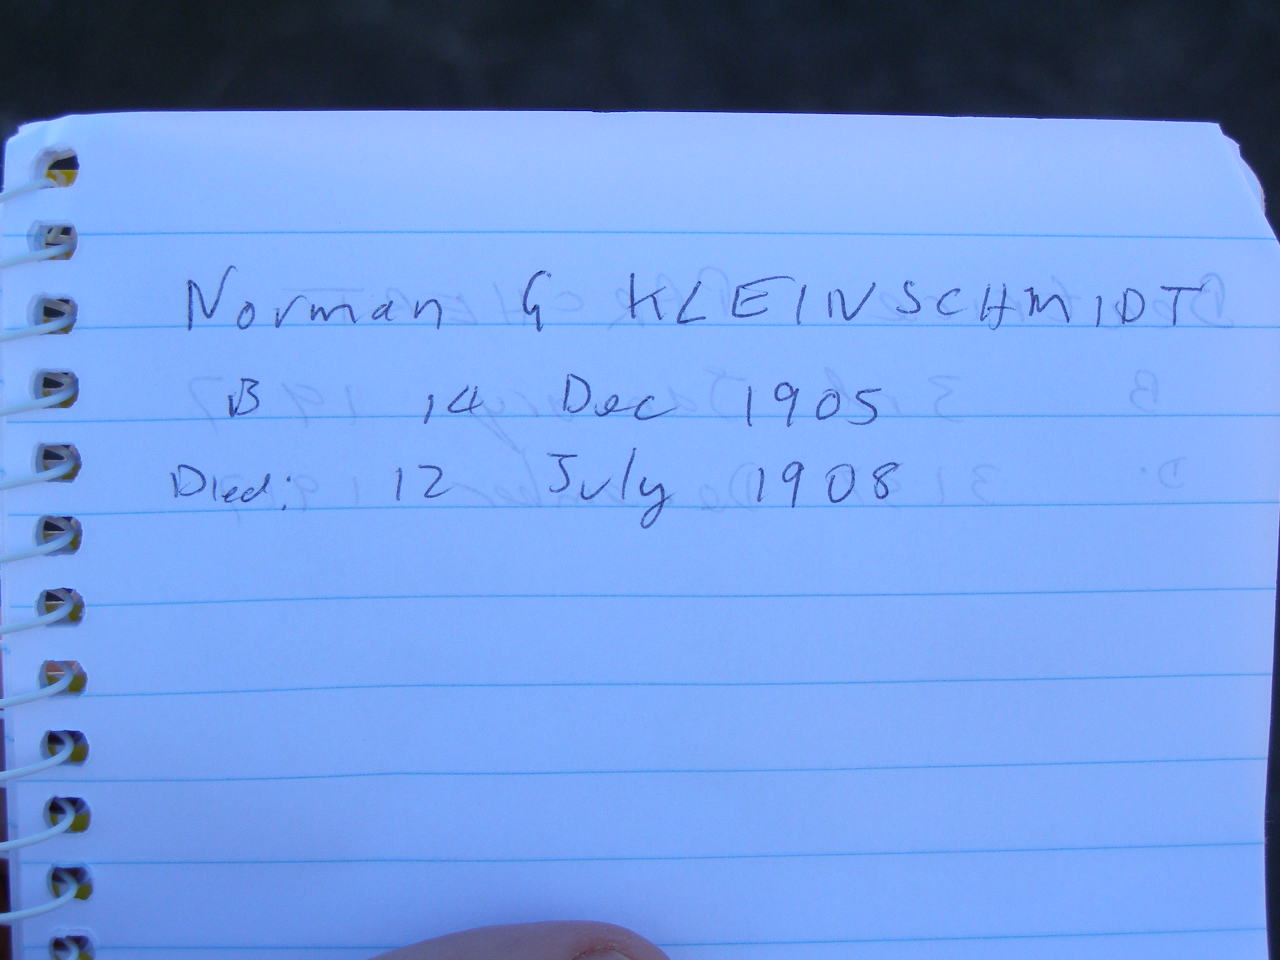 Norman G KLEINSCHMIDT
B 14 Dec 1905
Died: 12 July 1908